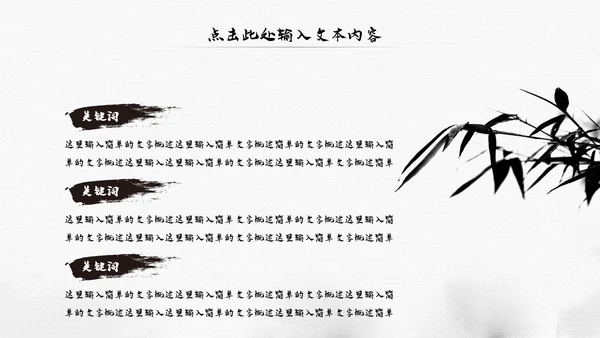 点击此处输入文本内容
关键词
这里输入简单的文字概述这里输入简单文字概述简单的文字概述这里输入
简单的文字概述这里输入简单文字概述简单的文字概述这里输入简单文字概述简单
关键词
这里输入简单的文字概述这里输入简单文字概述简单的文字概述这里输入
简单的文字概述这里输入简单的文字概述这里输入简单文字概述简单
关键词
这里输入简单的文字概述这里输入简单文字概述简单的文字概述这里输入简
单的文字概述这里输入简单的文字概述这里输入简单文字概述简单